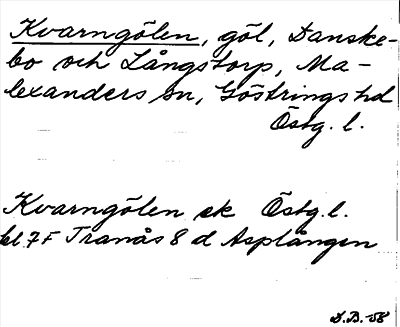 Kvarngölen, göl, Danske-
bo och Långstorp, Ma-
lexanders sn, Göstrings hd
Östg. l.
Kvarngölen ek Östg. l.
bl. 7F Tranås 8 d Asplången
D.B. -58